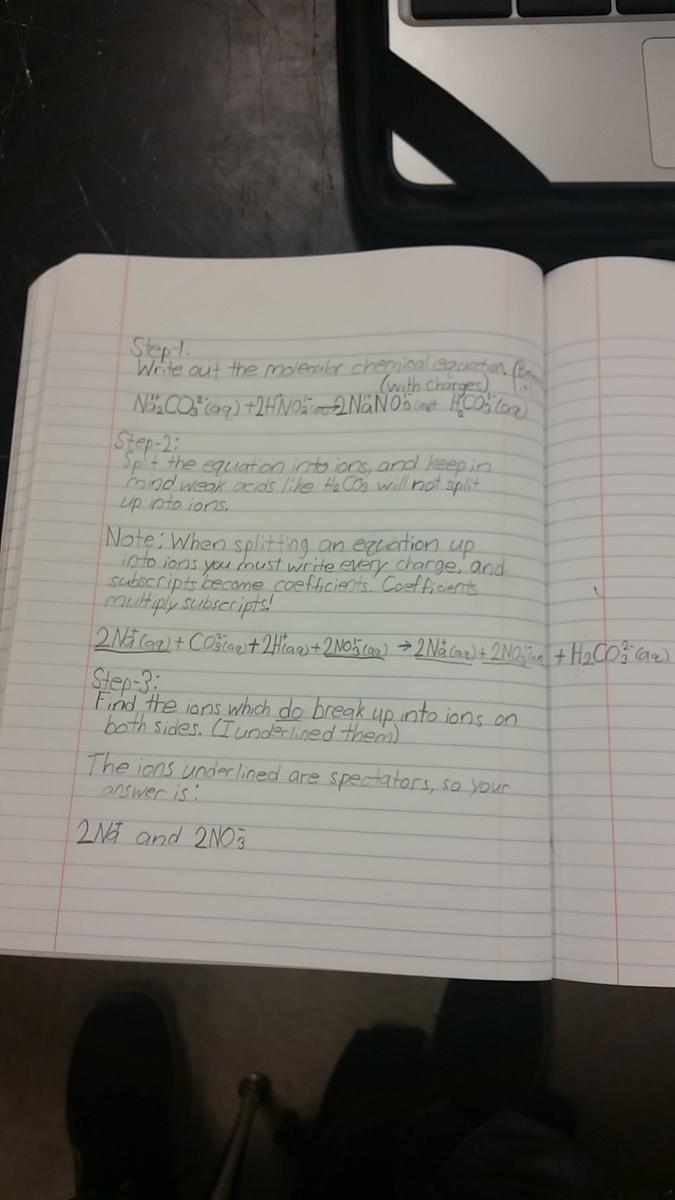 Step-1:
Write out the molecular chemical equation.
(with charges)
Na₂⁺CO₃²⁻(aq) + 2H⁺NO₃⁻ → 2Na⁺NO₃⁻ + H₂⁺CO₃²⁻(aq)
Step-2:
Split the equation into ions, and keep in
mind weak acids like H₂CO₃ will not split
up into ions.
Note: When splitting an equation up
into ions you must write every charge, and
subscripts become coefficients. Coefficients
multiply subscripts!
2Na⁺(aq) + CO₃²⁻(aq) + 2H⁺(aq) + 2NO₃⁻(aq) → 2Na⁺(aq) + 2NO₃⁻(aq) + H₂CO₃²⁻(aq)
Step-3:
Find the ions which do break up into ions on
both sides. (I underlined them)
The ions underlined are spectators, so your
answer is:
2Na⁺ and 2NO₃⁻